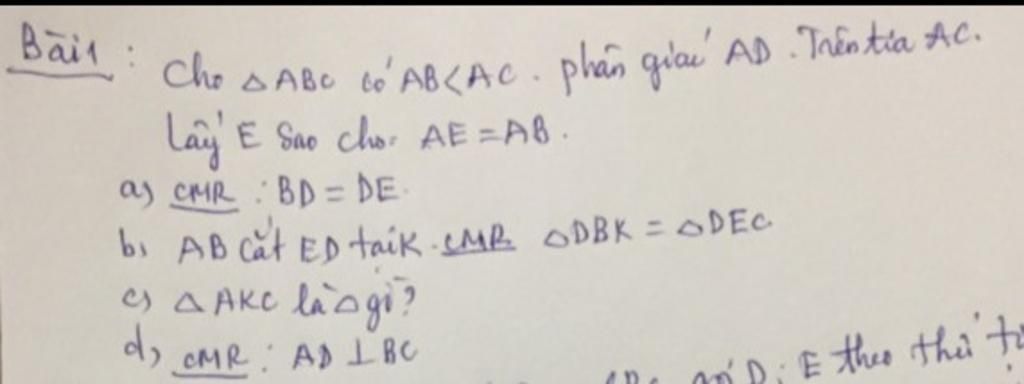 Bài 1 : Cho △ABC có AB<AC. phân giác AD. Trên tia AC.
lấy E sao cho. AE = AB.
a) CMR : BD = DE.
b, AB cắt ED tại K. CMR △DBK = △DEC
c) △AKC là △ gì?
d, CMR : AD ⊥ BC
D; E theo thứ tự